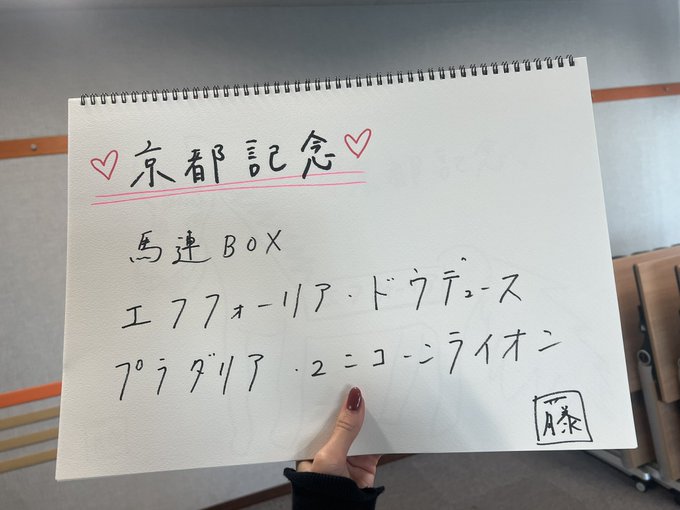 ♡京都記念♡
馬連BOX
エフフォーリア・ドウデュース
プラダリア・ユニコーンライオン
藤